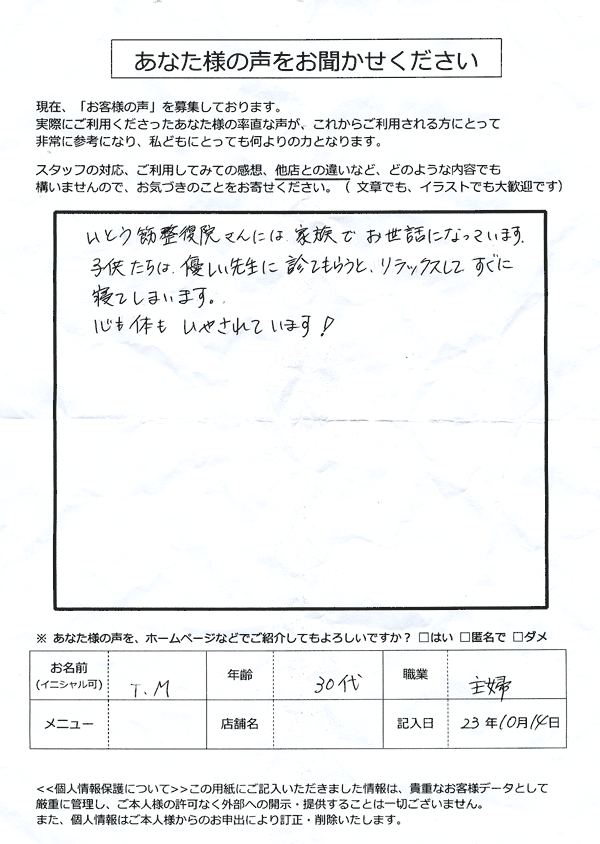 あなた様の声をお聞かせください
現在、「お客様の声」を募集しております。
実際にご利用くださったあなた様の率直な声が、これからご利用される方にとって
非常に参考になり、私どもにとっても何よりの力となります。
スタッフの対応、ご利用してみての感想、他店との違いなど、どのような内容でも
構いませんので、お気づきのことをお寄せください。（ 文章でも、イラストでも大歓迎です）
いとう筋整復院さんには、家族でお世話になっています。
子供たちは、優しい先生に診てもらうと、リラックスしてすぐに
寝てしまいます。
心も体もいやされています！
※ あなた様の声を、ホームページなどでご紹介してもよろしいですか？ □はい □匿名で □ダメ
お名前 (イニシャル可) T.M 年齢 30代 職業 主婦
メニュー 店舗名 記入日 23年10月14日
<<個人情報保護について>>この用紙にご記入いただきました情報は、貴重なお客様データとして
厳重に管理し、ご本人様の許可なく外部への開示・提供することは一切ございません。
また、個人情報はご本人様からのお申出により訂正・削除いたします。